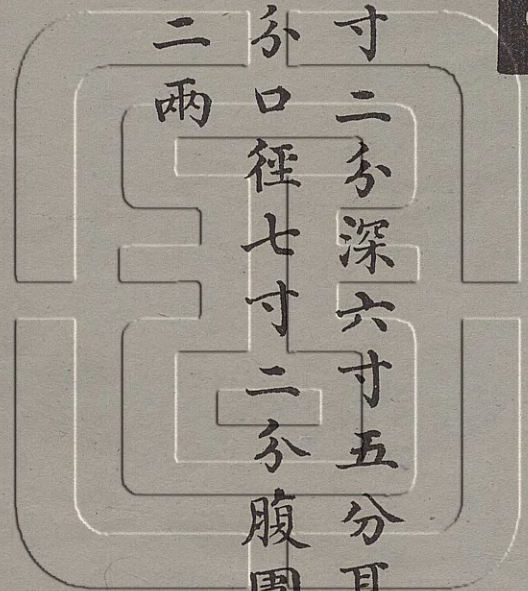 寸二分深六寸五分耳
分口徑七寸二分腹圍
二兩